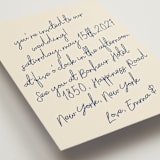 you're invited to our
wedding!
saturday, may 15th, 2021
at five o'clock in the afternoon
See you at Bonheur Hotel
1850, Happiness Road,
New York, New York
Love, Emma &